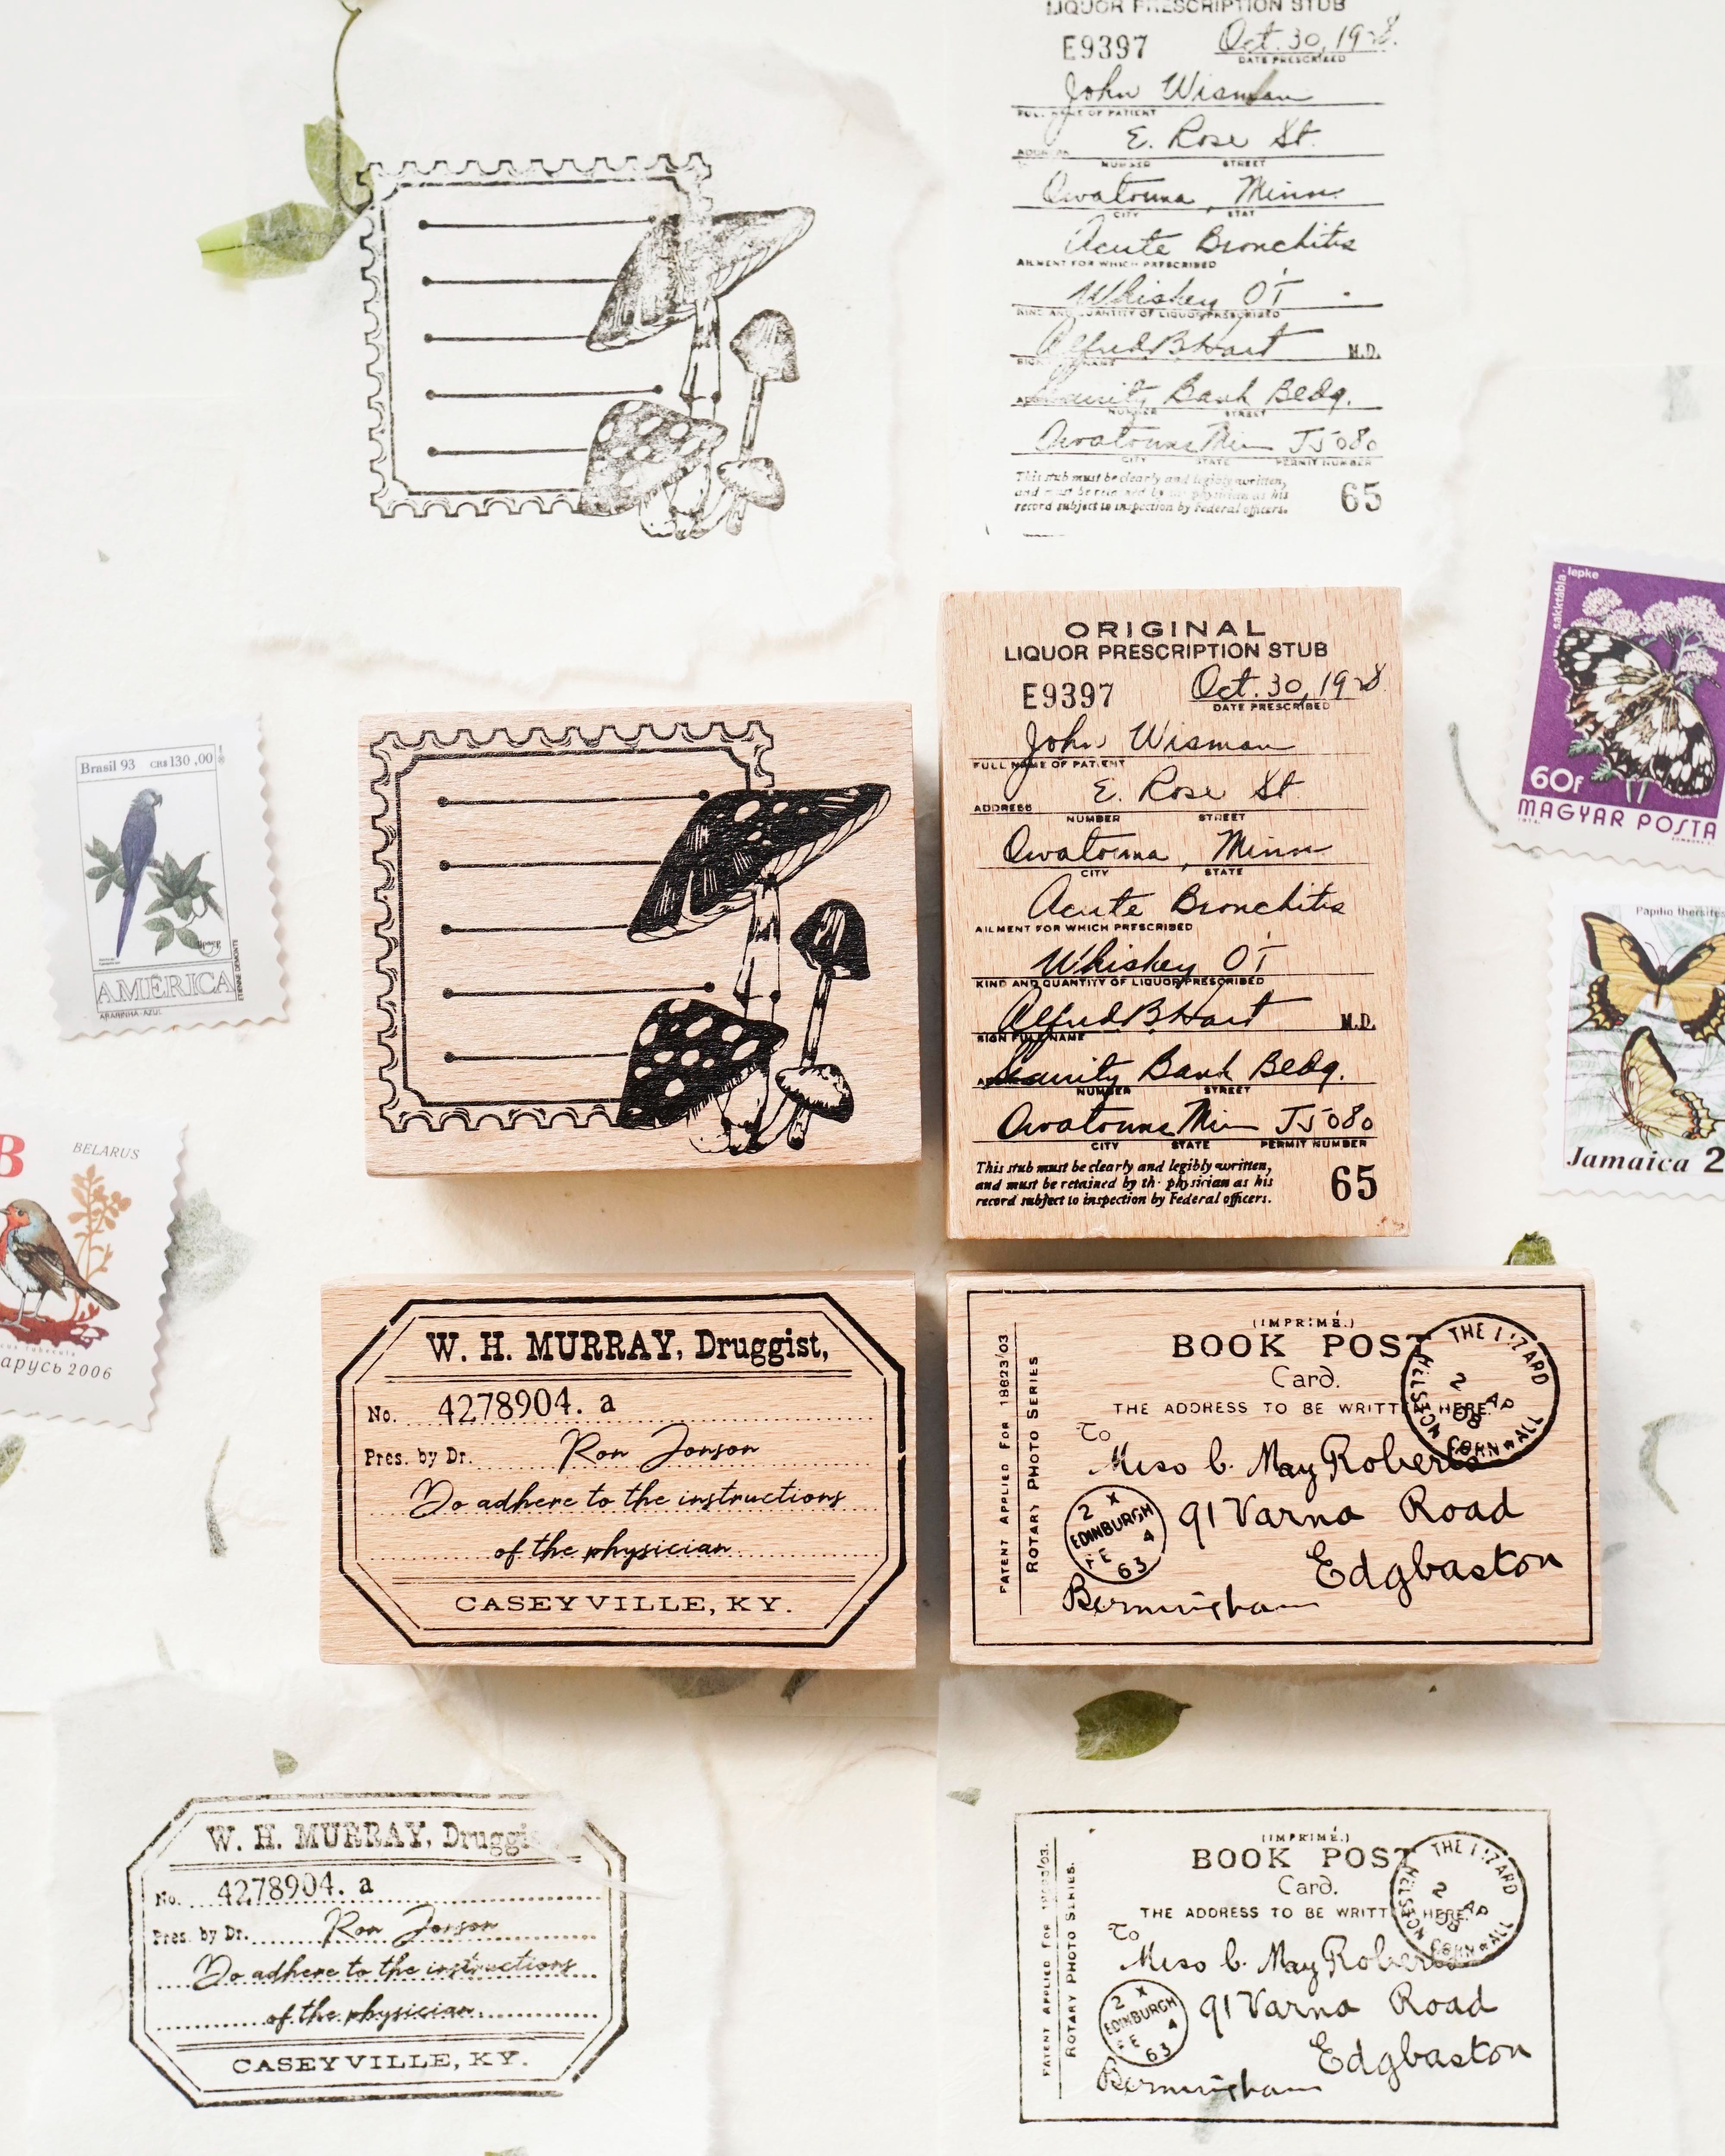 LIQUOR PRESCRIPTION STUB
E9397 Oct. 30, 1928.
DATE PRESCRIBED
John Wisman
FULL NAME OF PATIENT
E. Rose St.
ADDRESS NUMBER STREET
Owatonna, Minn.
CITY STAT
Acute Bronchitis
AILMENT FOR WHICH PRESCRIBED
Whiskey OT
KIND AND QUANTITY OF LIQUOR PRESCRIBED
Alfred B Hart M.D.
SIGN NAME
Security Bank Bldg.
NUMBER STREET
Owatonna Min J5080
CITY STATE PERMIT NUMBER
This stub must be clearly and legibly written,
and must be retained by the physician as his
record subject to inspection by Federal officers.
65
ORIGINAL
LIQUOR PRESCRIPTION STUB
E9397 Oct. 30, 1928
DATE PRESCRIBED
John Wisman
FULL NAME OF PATIENT
E. Rose St
ADDRESS NUMBER STREET
Owatonna, Minn
CITY STATE
Acute Bronchitis
AILMENT FOR WHICH PRESCRIBED
Whiskey OT
KIND AND QUANTITY OF LIQUOR PRESCRIBED
Alfred B Hart M.D.
SIGN FULL NAME
Security Bank Bldg.
NUMBER STREET
Owatonna Min J5080
CITY STATE PERMIT NUMBER
This stub must be clearly and legibly written,
and must be retained by th· physician as his
record subject to inspection by Federal officers.
65
Brasil 93 CR$ 130,00
AMÉRICA
ARARINHA-AZUL
ETIENNE DEMONTE
B
BELARUS
арусь 2006
sakktábla-lepke
60f
MAGYAR POSTA
Papilio thersites
Jamaica 2
W. H. MURRAY, Druggist,
No. 4278904. a
Pres. by Dr. Ron Jonson
Do adhere to the instructions
of the physician
CASEYVILLE, KY.
(IMPRIMÉ.)
BOOK POST
Card.
THE ADDRESS TO BE WRITTEN HERE.
To
Miss C. May Roberts
91 Varna Road
Edgbaston
Birmingham
PATENT APPLIED FOR 18623/03.
ROTARY PHOTO SERIES
THE LIZARD
2 AP 08
HELSTON CORNWALL
2 X
EDINBURGH
4
FE
63
W. H. MURRAY, Druggi
No. 4278904. a
Pres. by Dr. Ron Jonson
Do adhere to the instructions
of the physician.
CASEYVILLE, KY.
(IMPRIMÉ.)
BOOK POST
Card.
THE ADDRESS TO BE WRITTEN HERE.
To
Miss C. May Roberts
91 Varna Road
Edgbaston
Birmingham
PATENT APPLIED FOR
ROTARY PHOTO SERIES.
THE LIZARD
2 AP
CORNWALL
2 X
EDINBURGH
4
FE
63